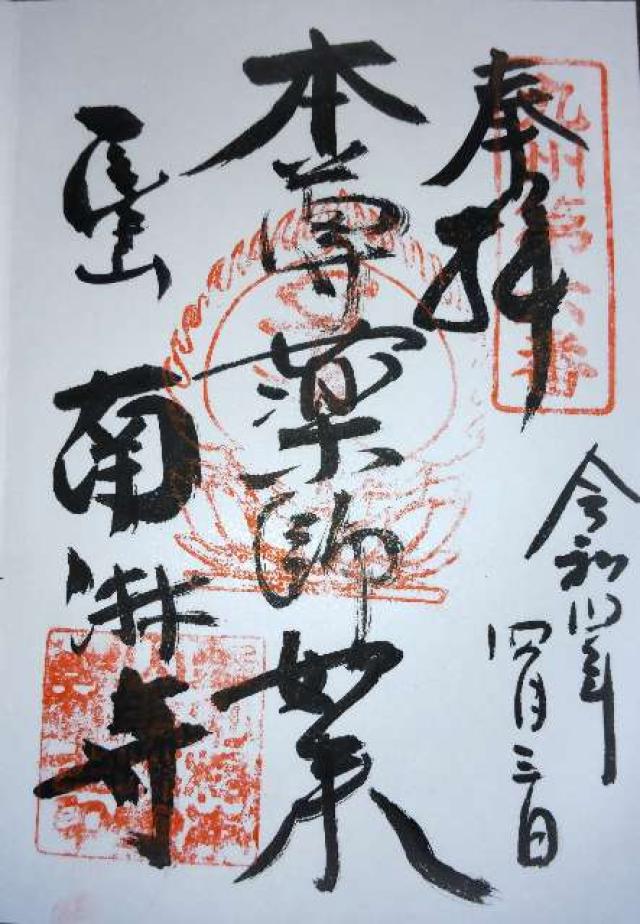 九州第六番
奉拝
令和四年
四月三日
本尊薬師如来
医王山
南淋寺